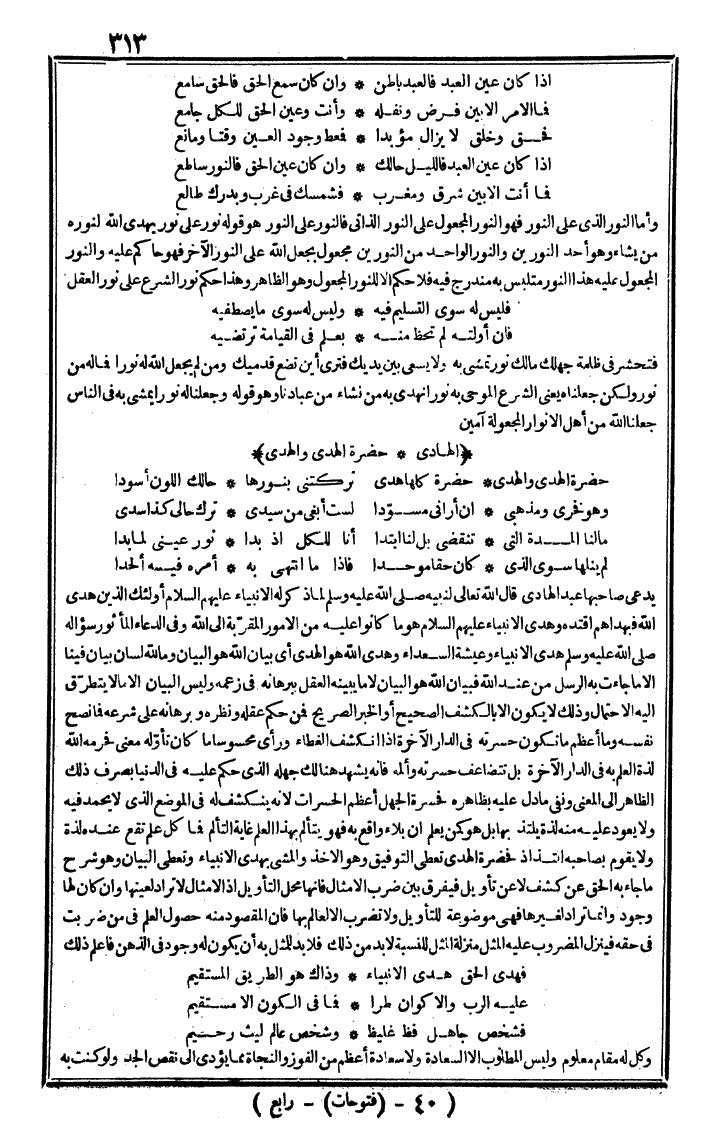 ٣١٣
اذا كان عين العبد فالعبد باطن * وان كان سمع الحق فالحق سامع
فما الامر الا بين فرض ونفله * وأنت وعين الحق للكل جامع
فحق وخلق لا يزال مؤبدا * فعط وجود العين وقتا ومانع
اذا كان عين العبد فالليل حالك * وان كان عين الحق فالنور ساطع
فما أنت الا بين شرق ومغرب * فشمسك فى غرب وبدرك طالع
وأما النور الذى على النور فهو النور المجعول على النور الذاتى فالنور على النور هو قوله نور على نور يهدى الله لنوره
من يشاء وهو أحد النورين والنور الواحد من النورين مجعول بجعل الله على النور الآخر فهو حاكم عليه والنور
المجعول عليه هذا النور متلبس به مندرج فيه فلا حكم الا للنور المجعول وهو الظاهر وهذا حكم نور الشرع على نور العقل
فليس له سوى التسليم فيه * وليس له سوى ما يصطفيه
فان أولته لم تحظ منه * بعلم فى القيامة ترتضيه
فتحشر فى ظلمة جهلك مالك نور تمشى به ولا يسعى بين يديك فترى أين تضع قدميك ومن لم يجعل الله له نورا فماله من
نور ولكن جعلناه يعنى الشرع الموحى به نورا نهدى به من نشاء من عبادنا وهو قوله وجعلنا له نورا يمشى به فى الناس
جعلنا الله من أهل الانوار المجعولة آمين
﴿الهادى * حضرة الهدى والهدى﴾
حضرة الهدى والهدى * حضرة كلها هدى تركتنى بنورها * حالك اللون أسودا
وهو فخرى ومذهبى * ان أرانى مسودا لست أبغى من سيدى * ترك حالى كذا سدى
مالنا المدة التى * تنقضى بل لنا ابتدا أنا للكل اذ بدا * نور عينى لما بدا
لم ينلها سوى الذى * كان حقا موحدا فاذا ما انتهى به * أمره فيه ألحدا
يدعى صاحبها عبد الهادى قال الله تعالى لنبيه صلى الله عليه وسلم لما ذكر له الانبياء عليهم السلام أولئك الذين هدى
الله فبهداهم اقتده وهدى الانبياء عليهم السلام هو ما كانوا عليه من الامور المقربة الى الله وفى الدعاء المأثور سؤاله
صلى الله عليه وسلم هدى الانبياء وعيشة السعداء وهدى الله هو الهدى أى بيان الله هو البيان ومالله لسان بيان فينا
الا ماجاءت به الرسل من عند الله فبيان الله هو البيان لا ما يبينه العقل ببرهانه فى زعمه وليس البيان الا مالا يتطرق
اليه الاحتمال وذلك لا يكون الا بالكشف الصحيح أو الخبر الصريح فمن حكم عقله ونظره وبرهانه على شرعه فما نصح
نفسه وما أعظم ما تكون حسرته فى الدار الآخرة اذا انكشف الغطاء ورأى محسوسا ما كان تأوله معنى فحرمه الله
لذة العلم به فى الدار الآخرة بل تتضاعف حسرته وألمه فانه يشهد هنالك جهله الذى حكم عليه فى الدنيا بصرف ذلك
الظاهر الى المعنى ونفى مادل عليه بظاهره فحسرة الجهل أعظم الحسرات لانه ينكشف له فى الموضع الذى لا يحمد فيه
ولا يعود عليه منه لذة يلتذ بها بل هو كمن يعلم ان بلاء واقع به فهو يتألم بهذا العلم غاية التألم فما كل علم تقع عنده لذة
ولا يقوم بصاحبه التذاذ فحضرة الهدى تعطى التوفيق وهو الاخذ والمشى بهدى الانبياء وتعطى البيان وهو شرح
ماجاء به الحق عن كشف لا عن تأويل فيفرق بين ضرب الامثال فانها محل التأويل اذ الامثال لا تراد لعينها وان كان لها
وجود وانما تراد لغيرها فهى موضوعة للتأويل ولا تضرب الا لعالم بها فان المقصود منه حصول العلم فى من ضربت
فى حقه فينزل المضروب عليه المثل منزلة المثل للنسبة لا بد من ذلك فلا بد للمثل به أن يكون له وجود فى الذهن فاعلم ذلك
فهدى الحق هدى الانبياء * وذاك هو الطريق المستقيم
عليه الرب والاكوان طرا * فما فى الكون الا مستقيم
فشخص جاهل فظ غليظ * وشخص عالم ليث رحيم
وكل له مقام معلوم وليس المطلوب الا السعادة ولا سعادة أعظم من الفوز والنجاة مما يؤدى الى نقص الجد ولو كنت به
( ٤٠ - (فتوحات) - رابع )